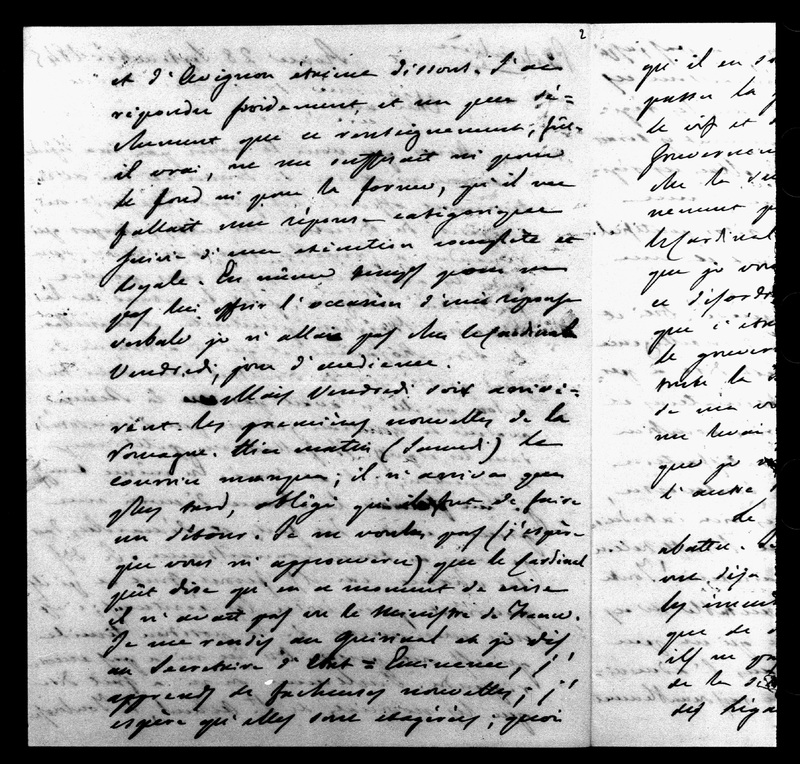 2
et d'Avignon étaient dissous. J'ai
répondu froidement, et un peu sé=
chement que ce renseignement, fût-
il vrai, ne me suffisait ni pour
le fond ni pour la forme, qu'il me
fallait une réponse catégorique
suivie d'une exécution complète et
loyale. En même temps pour ne
pas lui offrir l'occasion d'une réponse
verbale je n'allai pas chez le Cardinal
Vendredi, jour d'audience.
Mais Vendredi soir arrivè=
rent les premières nouvelles de la
Romagne. Hier matin (Samedi) le
courrier manqua; il n'arriva que
plus tard, obligé qu'il fut de faire
un détour. Je ne voulus pas (j'espère
que vous m'approuverez) que le Cardinal
pût dire qu'en ce moment de crise
il n'avait pas vu le Ministre de France.
Je me rendis au Quirinal et je dis
au Secrétaire d'Etat = Eminence, j'
apprends de facheuses nouvelles; j'
espère qu'elles sont exagérées; quoi
qu'il en
passer la
le vif et
Gouvernem
de la
nement
le Cardinal
que je
ce désordre
que c'était
le gouver
toute la
de ma
me
que je
l'autre
Le
abattu.
vue déjà
les
que de
ils ne
de la
des Léga